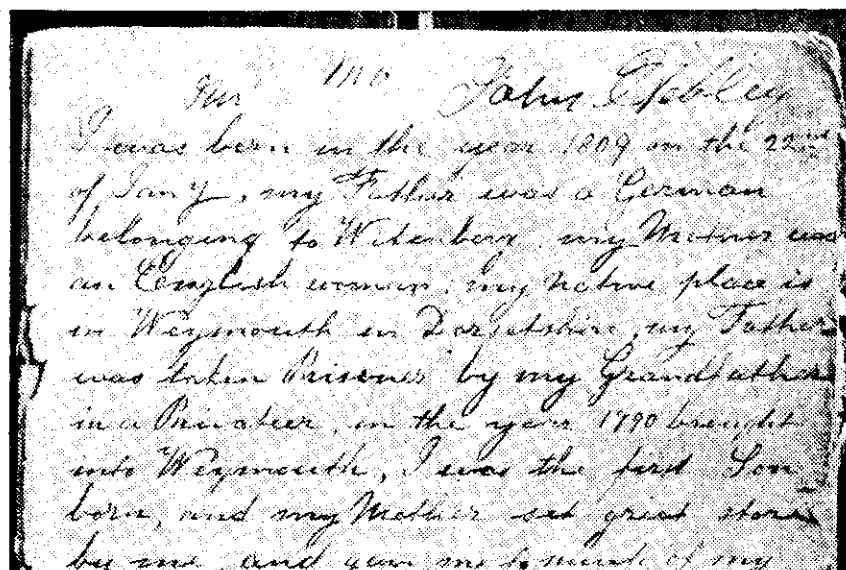 John
I was born in the year 1809 on the 22nd
of Jany, my Father was a German
belonging to my Mother was
an English woman, my native place is
in Weymouth in Dorsetshire, my Father
was taken Prisoner by my Grandfather
in a Privateer, in the year 1790 brought
into Weymouth, I was the first Son
born, and my Mother set great store
by me, and gave me much of my